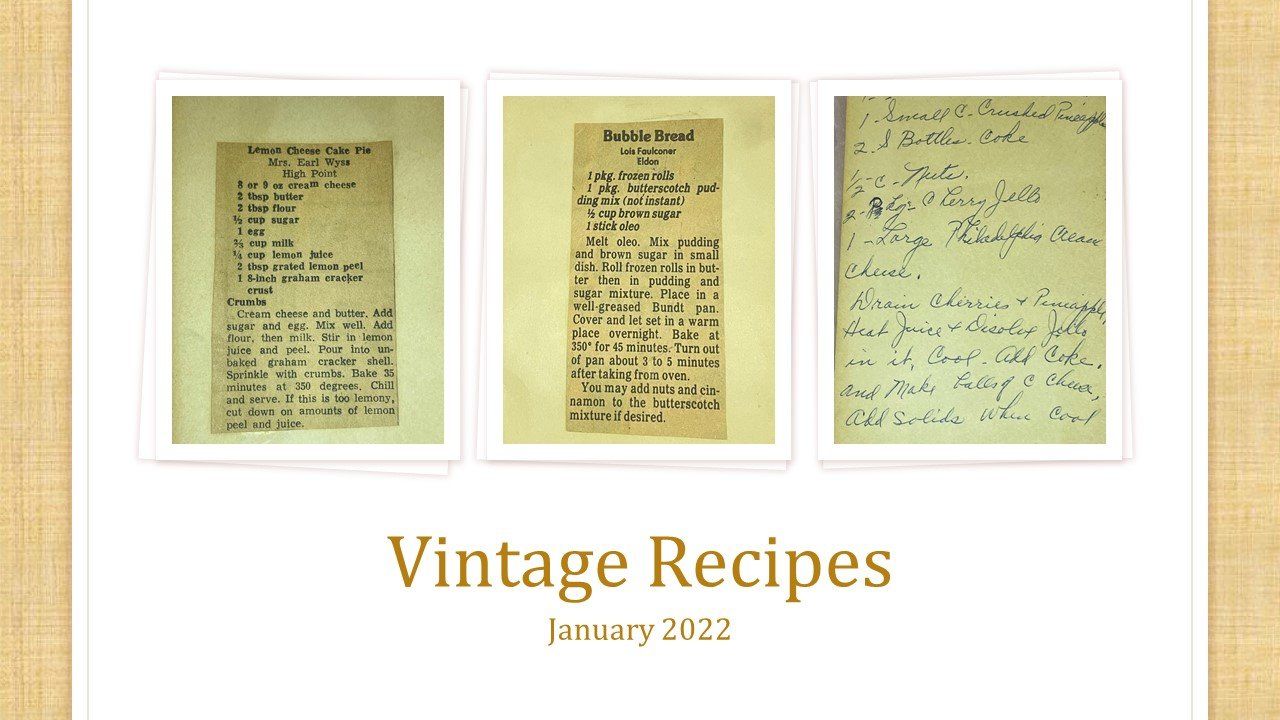 Lemon Cheese Cake Pie
Mrs. Earl Wyss
High Point
8 or 9 oz cream cheese
2 tbsp butter
2 tbsp flour
½ cup sugar
1 egg
⅔ cup milk
¼ cup lemon juice
2 tbsp grated lemon peel
1 8-inch graham cracker
crust
Crumbs
Cream cheese and butter. Add
sugar and egg. Mix well. Add
flour, then milk. Stir in lemon
juice and peel. Pour into un-
baked graham cracker shell.
Sprinkle with crumbs. Bake 35
minutes at 350 degrees. Chill
and serve. If this is too lemony,
cut down on amounts of lemon
peel and juice.
Bubble Bread
Lois Faulconer
Eldon
1 pkg. frozen rolls
1 pkg. butterscotch pud-
ding mix (not instant)
½ cup brown sugar
1 stick oleo
Melt oleo. Mix pudding
and brown sugar in small
dish. Roll frozen rolls in but-
ter then in pudding and
sugar mixture. Place in a
well-greased Bundt pan.
Cover and let set in a warm
place overnight. Bake at
350° for 45 minutes. Turn out
of pan about 3 to 5 minutes
after taking from oven.
You may add nuts and cin-
namon to the butterscotch
mixture if desired.
1-Small C. Crushed Pineapple
2. S Bottles. Coke
½-C-Nuts.
2- Lg- Cherry Jello
1-Large Philadelphia Cream
Cheese.
Drain Cherries + Pineapple,
Heat Juice + Disolve Jello
in it, Cool. Add Coke.
and Make balls of C Cheese,
Add Solids When Cool
Vintage Recipes
January 2022